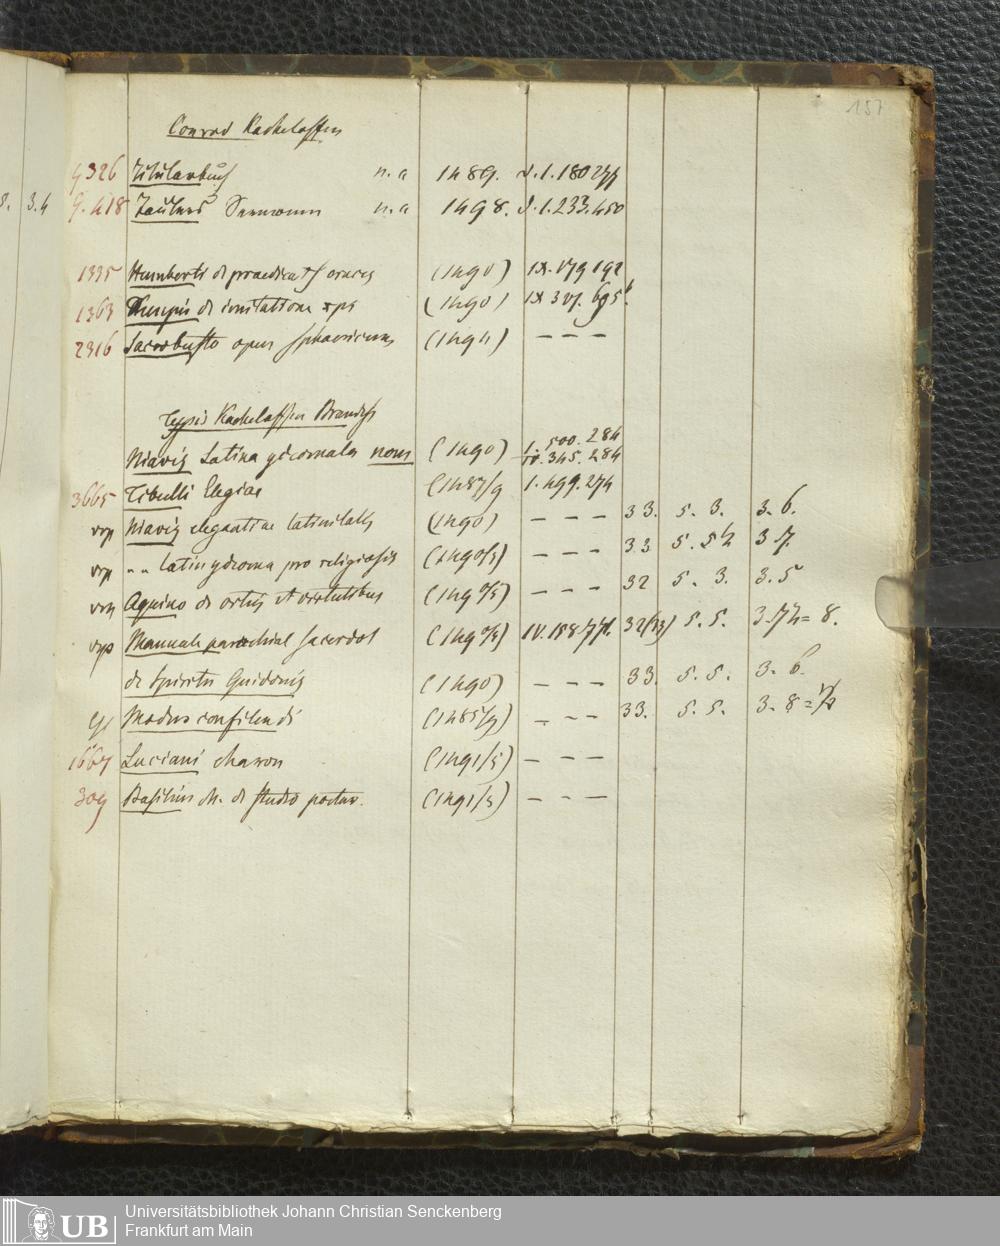 157
Conrad Kacheloffen
g 326 Titularbuch n. a 1489. d. 1. 180 277
g. 418 Taulers Sermonen n. a 1498. d. 1. 233. 450
S. 3.4
1335 Humberti de praedicat S crucis (1490) IX. 179 192
1363 Kempis de imitatione xpi (1490) IX 327. 695b.
2316 Sacrobusto opus sphaericum (1494) — — —
Typis Kacheloffen Brandis
Niavis Latina ydeomata nova (1490) 1. 500. 284
IV. 345. 284
3665 Tibulli Elegiae (1487/9 1. 499. 274
Niavis elegantiae latinitatis (1490) — — — 33. 5. 3. 3. 6.
" " latin ydeoma pro religiosis (1490/5) — — — 33 5. 5½ 3 7.
Aquino de ortis et virtutibus (1490/5) — — — 32 5. 3. 3. 5
Manuale parochial sacerdot (1490/5) IV. 158. 771. 32(33) 5. 5. 3. 7½ = 8.
de Spiritu Guidonis (1490) — — — 33. 5. 5. 3. 6.
Modus confitendi (1485/9) — — — 33. 5. 5. 3. 8 =
1667 Luciani charon (1491/5) — — —
309 Basilius M. de studio poetar. (1491/5) — — —
UB Universitätsbibliothek Johann Christian Senckenberg
Frankfurt am Main